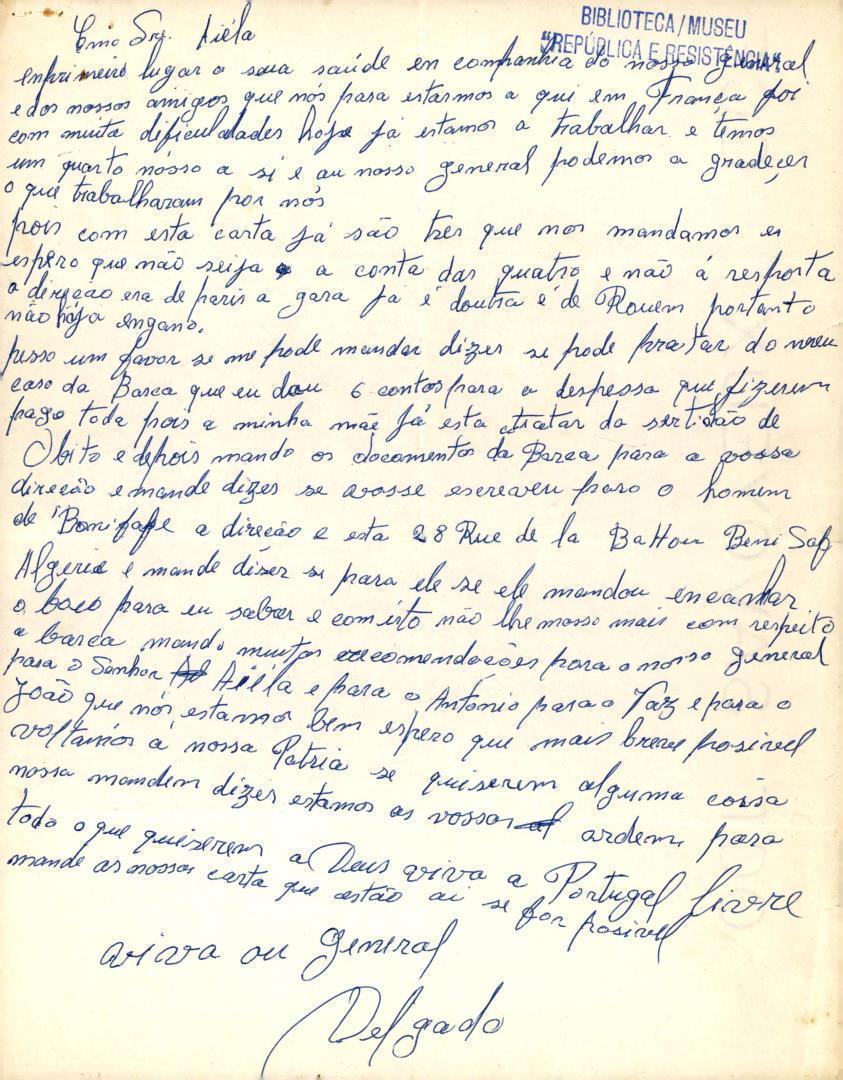 BIBLIOTECA/MUSEU
"REPÚBLICA E RESISTÊNCIA"
Exmo Srq. Aiéla
enprimeiro lugar a sua saúde en companhia do nosso General
e dos nossos amigos que nós para estarmos a qui em França foi
com muita dificuldades hoje já estamos a trabalhar e temos
um quarto nósso a si e au nosso general podemos a gradeçer
o que trabalharam por nós
pois com esta carta já são tres que nos mandamos e
espero que não seija a conta das quatro e não á resporta
a direcão era de paris a gara já é doutra é de Rouem portanto
não hája engano.
pesso um favor se me pode mandar dizer se pode tratar do meu
caso da Barca que eu dou 6 contos para a despessa que fizerem
pago toda pois a minha mãe já esta tratar da sertidão de
Obito e depois mando os documentos da Barca para a vossa
direcão e mande dizer se a vosse escreveu para o homem
de a direcão e esta 28 Rue de la Beni Saf
Algerie e mande dizer se para ele se ele mandou encanhar
o baco para eu saber e com isto não lhe masso mais com respeito
a barca mando muitas recomendacões para o nosso general
para o Senhor Aiéla e para o António para o Vaz e para o
João que nós estamos bem espero que mais breve posivel
voltamos á nossa Patria se quiserem alguma coisa
nossa mandem dizer estamos as vossas ardem para
todo o que quizerem a Deus aviva a Portugal livre
mande as nossas carta que estão ai se for posivel
aviva ou General
Delgado